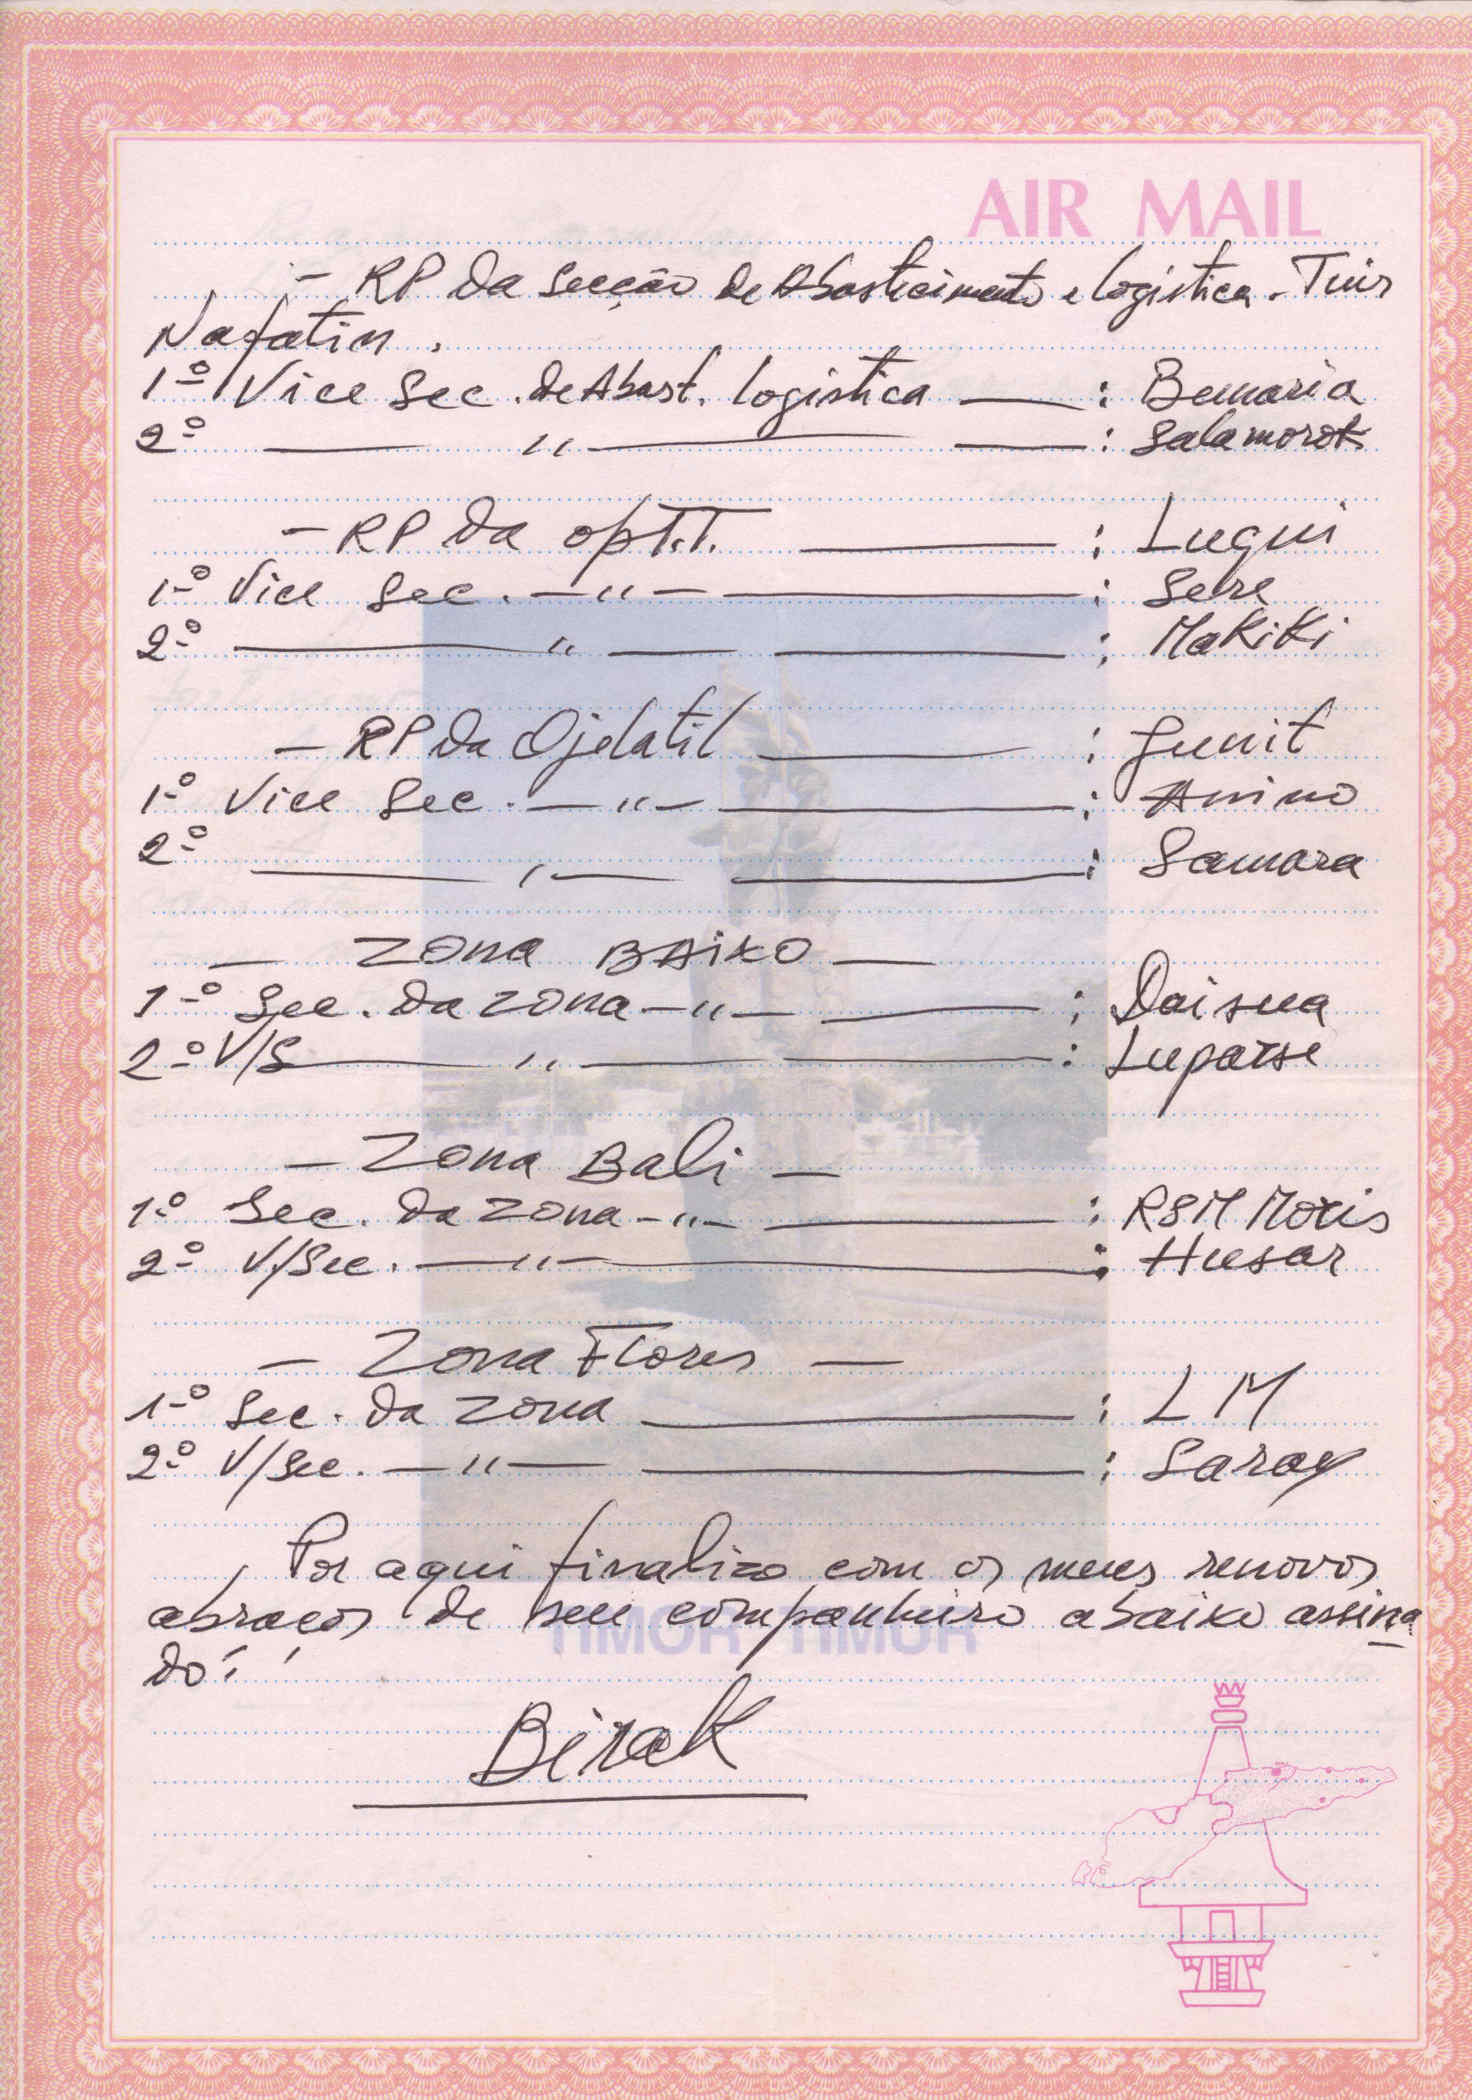 AIR MAIL
- RP da secção de Abastecimento e logistica - Tuir
Nafatin.
1º Vice Sec. de Abast. logistica — : Bemaria
2º — " — — : Salamorok
- RP da opt.T. — : Luqui
1º Vice Sec. - " - — : Sere
2º — " — — : Makiki
- RP da Ojelatil — : Junit
1º Vice Sec. - " - — : Anino
2º — " — — : Samora
- Zona BAiKO -
1º Sec. da zona - " - — : Daisua
2º V/S — " — — : Luparse
- Zona Bali -
1º Sec. da zona - " - — : RSM Moris
2º V/Sec. — " — : Husar
- Zona Flores -
1º Sec. da zona — : L M
2º V/Sec. - " - — : Saray
Por aqui finalizo com os meus renovos
abraços de seu companheiro abaixo assina
do!
TIMOR TIMUR
Birak